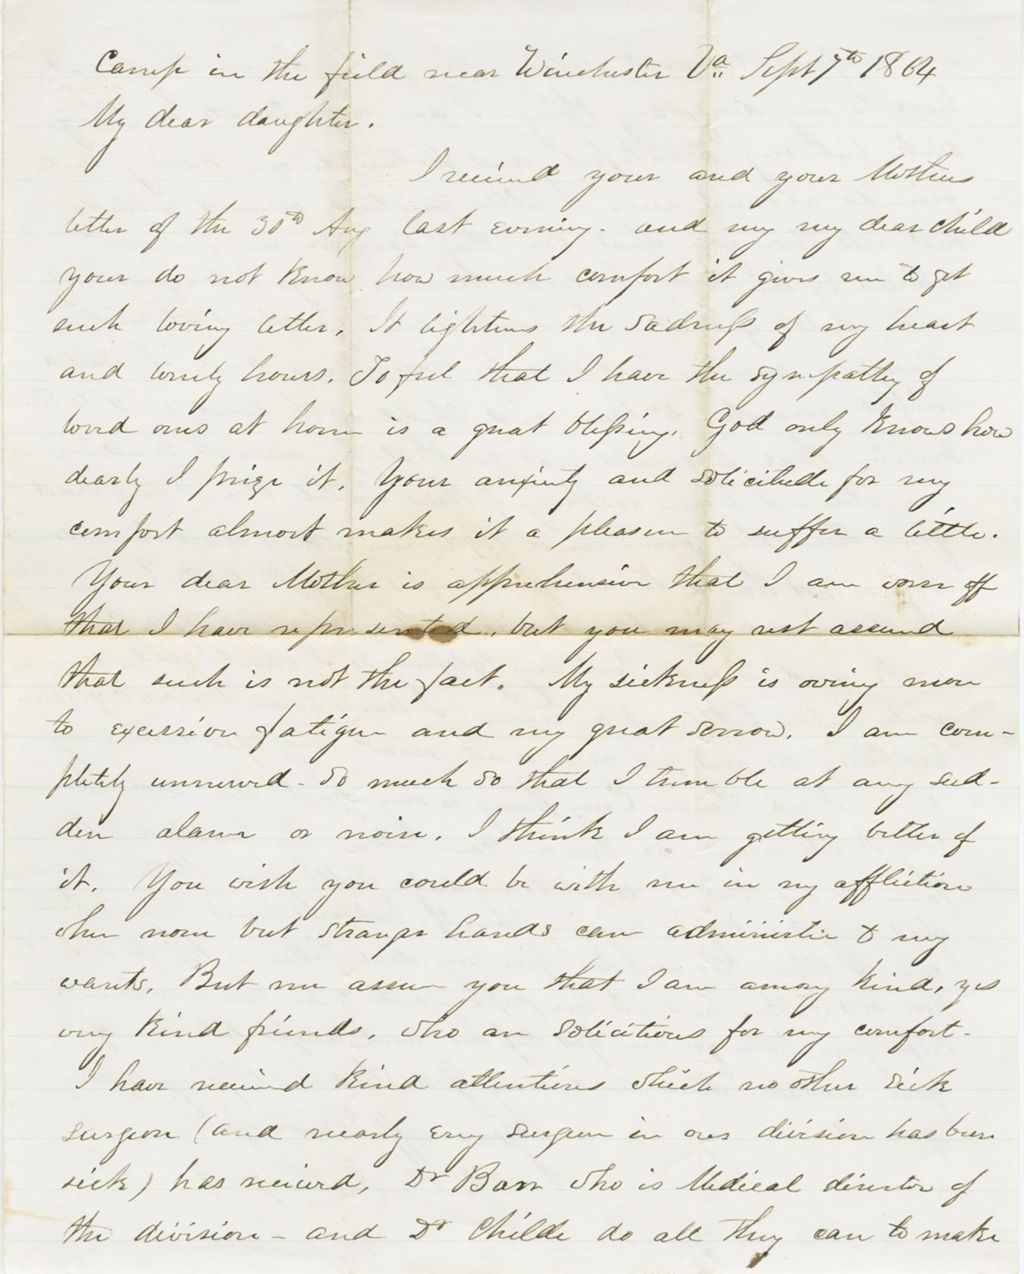 Camp in the field near Winchester Va Sept 7th 1864
My dear daughter.
I recieved your and your Mothers
letter of the 30th Aug last evening. and my my dear child
your do not know how much comfort it gives me to get
such loving letter. It lightens the sadness of my heart
and lonely hours. To feel that I have the sympathy of
loved ones at home is a great blessing. God only knows how
dearly I prize it. Your anxiety and solicitude for my
comfort almost makes it a pleasure to suffer a little.
Your dear Mother is apprehensive that I am worse off
that I have represented, but you may rest assured
that such is not the fact. My sickness is owing more
to excessive fatigue and my great sorrow. I am com-
pletely unnerved - so much so that I tremble at any sud-
den alarm or noise. I think I am getting better of
it. You wish you could be with me in my affliction
when none but strange hands can administer to my
wants. But me assure you that I am among kind, yes
very kind friends, who are solicitious for my comfort -
I have recieved kind attentions which no other sick
surgeon (and nearly every surgeon in our division has been
sick) has recieved, Dr Barr who is Medical director of
the division - and Dr Childe do all they can to make